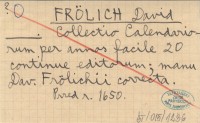 ? O FRÖLICH David
____. Collectio Calendario-
rum per annos facile 20
continue editorum; manu
Dav. Frölichii correcta.
Pred r. 1650.